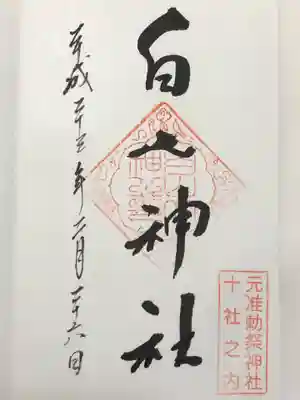 白山神社
平成二十三年二月二十六日
元准勅祭神社
十社之内